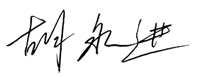 胡永进